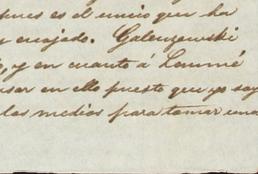 pues es el unico que ha
y enojado. Galenzowski
, y en cuanto á Loumé
usar en ello puesto que yo soy
los medios para tomar una